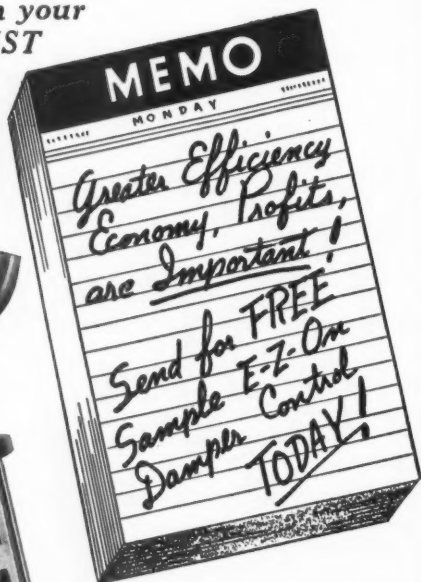 n your
IST
MEMO
MONDAY
Greater Efficiency
Economy, Profits,
are Important!
Send for FREE
Sample E-Z-On
Damper Control
TODAY!